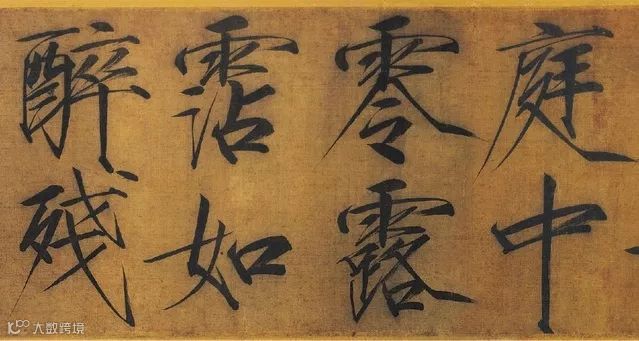 庭中
零露
霑如
醉残
大数跨境